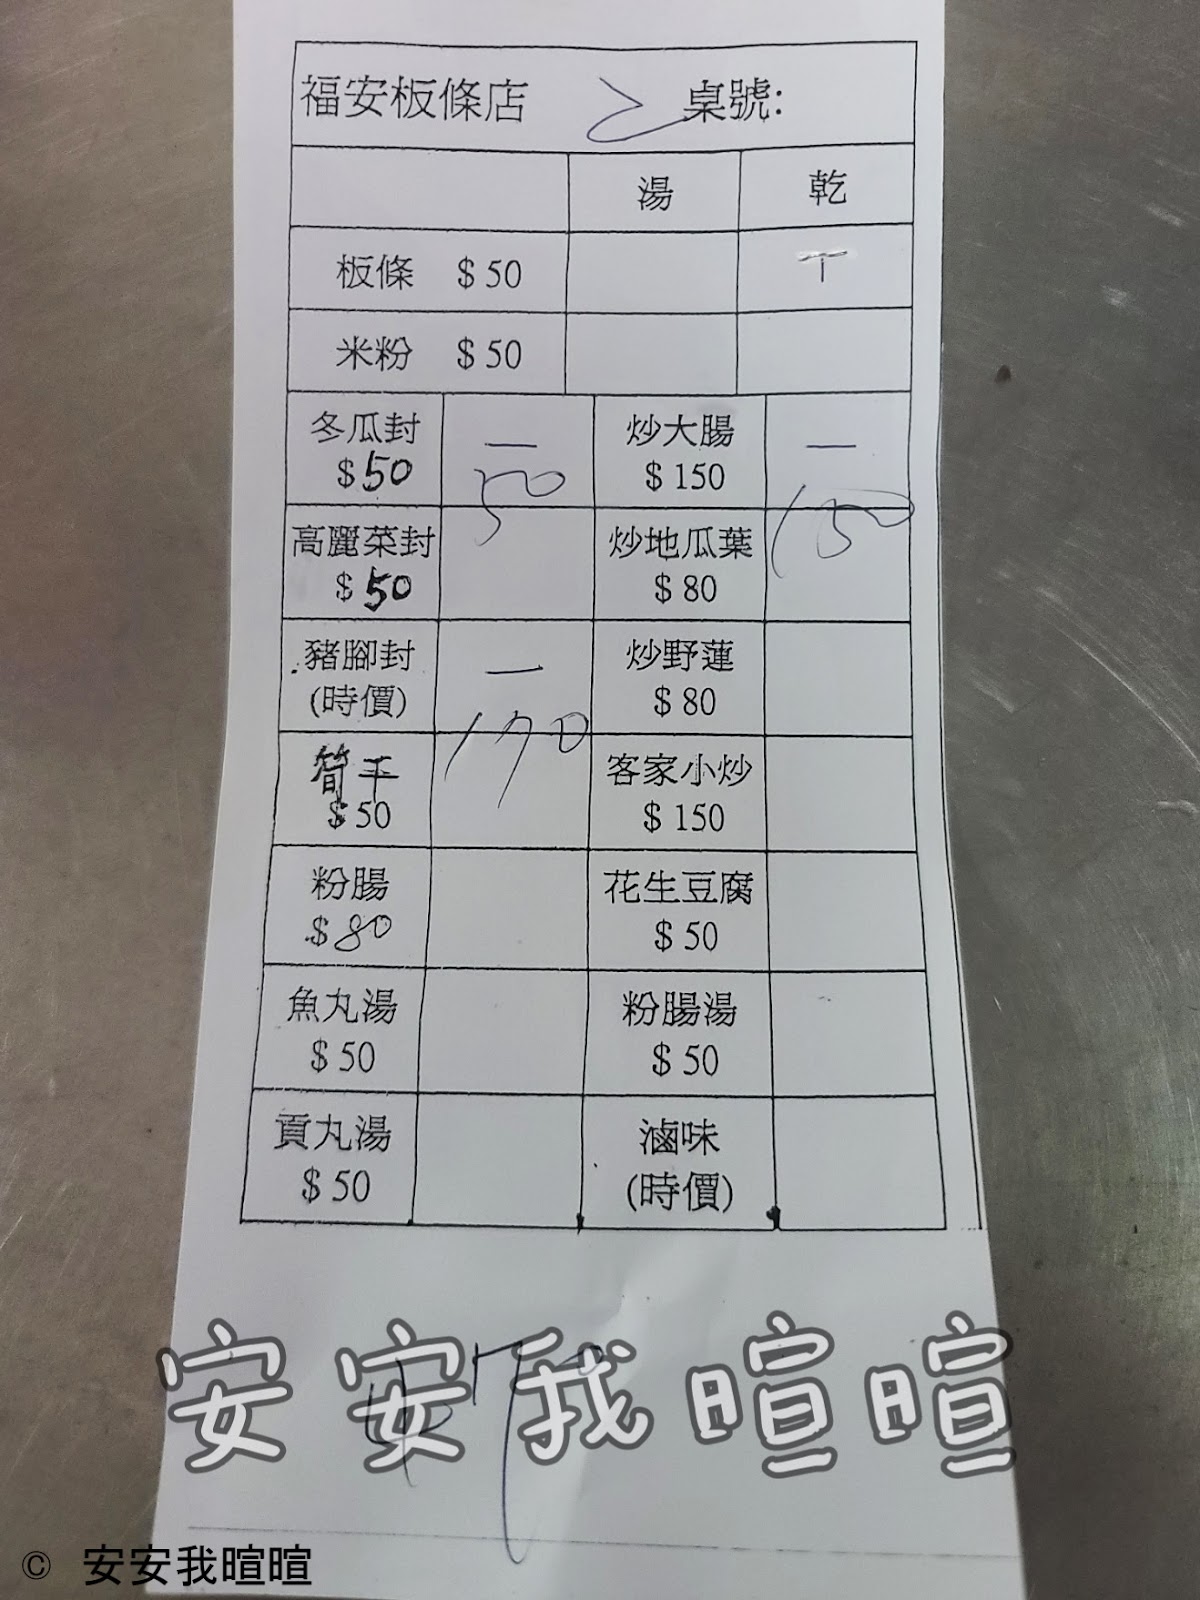 福安板條店 2 桌號:
湯 乾
板條 $50 T
米粉 $50
冬瓜封 一 炒大腸 一
$50 50 $150 150
高麗菜封 炒地瓜葉
$50 $80
豬腳封 一 炒野蓮
(時價) 170 $80
筍干 客家小炒
$50 $150
粉腸 花生豆腐
$80 $50
魚丸湯 粉腸湯
$50 $50
貢丸湯 滷味
$50 (時價)
470
安安我暄暄
© 安安我暄暄